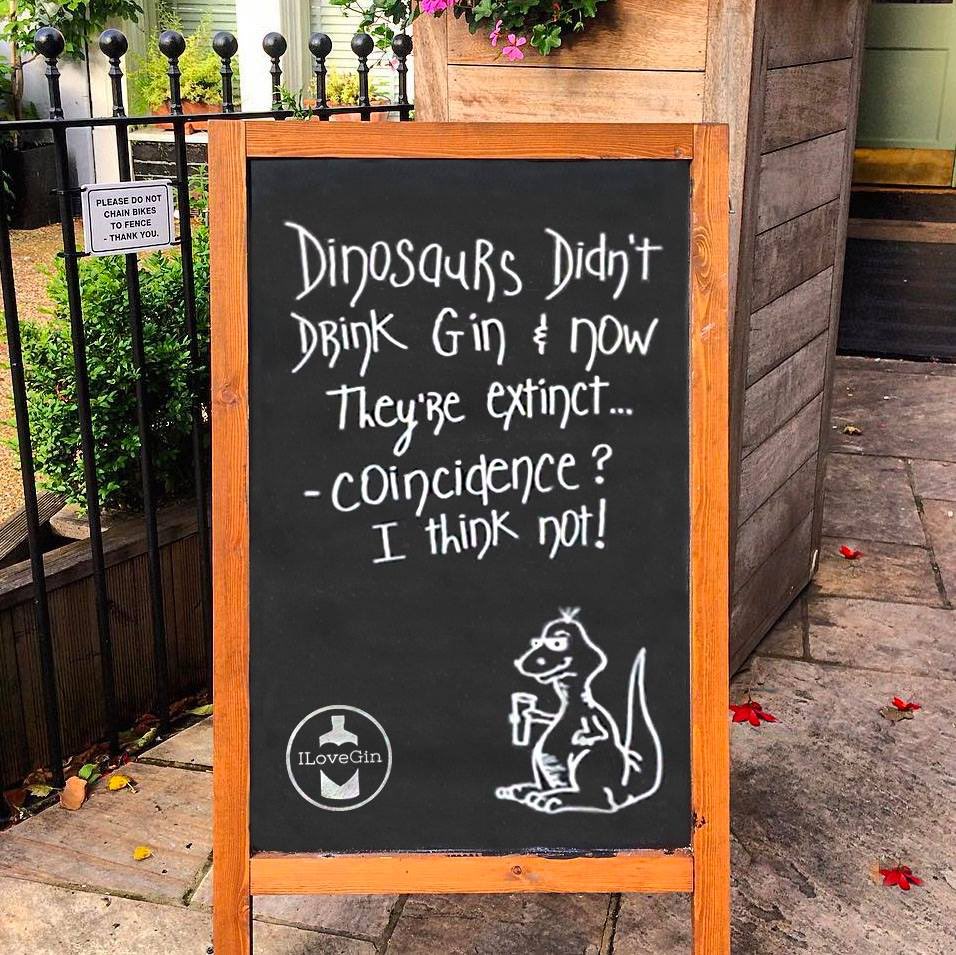 PLEASE DO NOT
CHAIN BIKES
TO FENCE
- THANK YOU.
Dinosaurs Didn't
Drink Gin & now
They're extinct...
- coincidence?
I think not!
ILoveGin